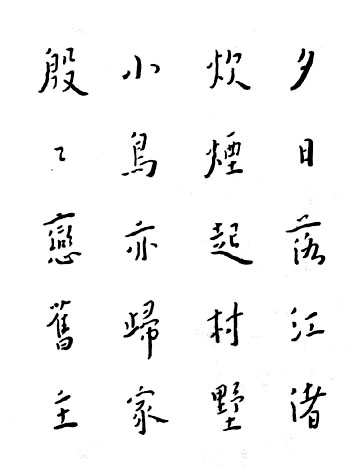 夕日落江渚
炊煙起村墅
小鳥亦歸家
殷〻戀舊主